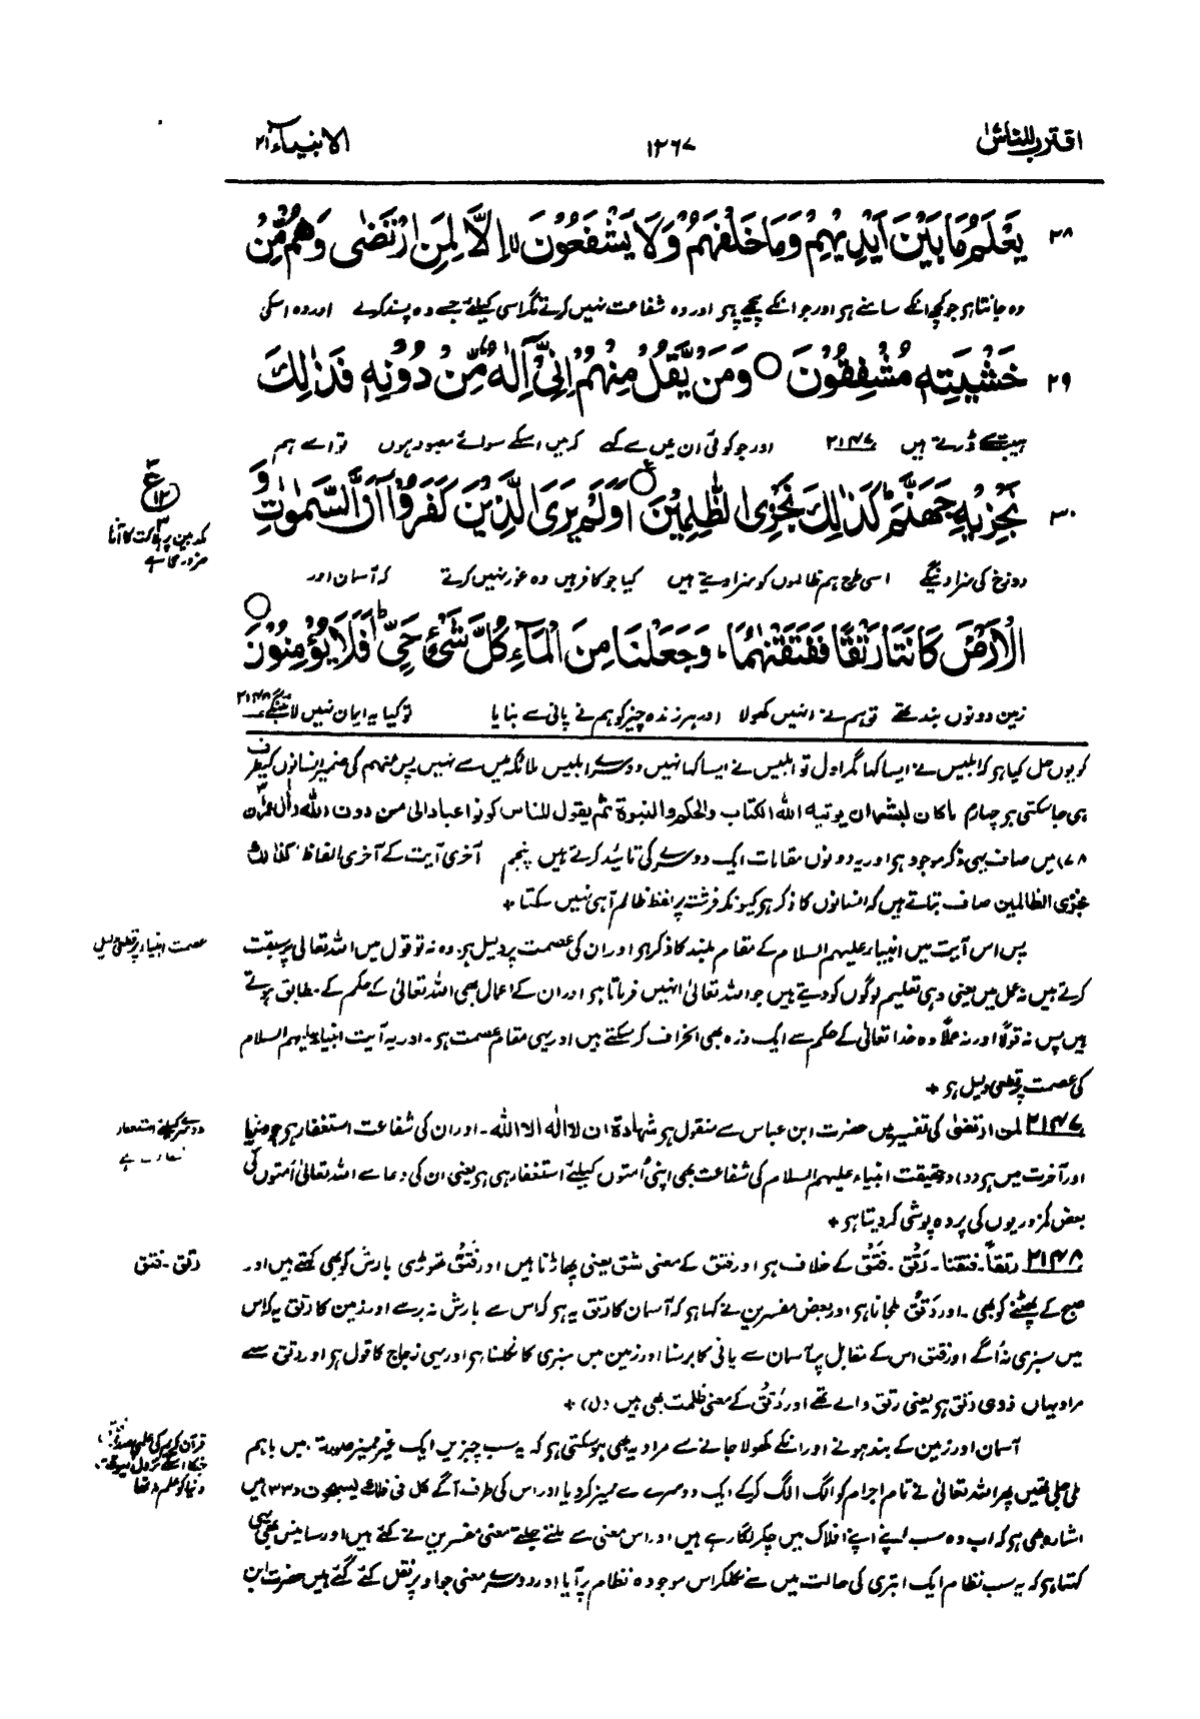 اقترب للناس ۱۷ ۱۲۶۷ الانبیاء ۲۱
۲۸ يَعْلَمُ مَا بَيْنَ اَيْدِيْهِمْ وَمَا خَلْفَهُمْ وَلَا يَشْفَعُوْنَ لا اِلَّا لِمَنِ ارْتَضٰى وَهُمْ مِّنْ
وہ جانتا ہو جو کچھ انکے سامنے ہو اور جو انکے پیچھے ہو اور وہ شفاعت نہیں کرتے مگر اسی کیلئے جسے وہ پسند کرے اور وہ اسکی
۲۹ خَشْيَتِهٖ مُشْفِقُوْنَ ○ وَمَنْ يَّقُلْ مِنْهُمْ اِنِّيْٓ اِلٰهٌ مِّنْ دُوْنِهٖ فَذٰلِكَ
ہیبت سے ڈرتے ہیں ۲۱۴۷ اور جو کوئی ان میں سے کہے کہ میں اسکے سوائے معبود ہوں تو اسے ہم
۳۰ نَجْزِيْهِ جَهَنَّمَ ؕ كَذٰلِكَ نَجْزِى الظّٰلِمِيْنَ ○ ع اَوَلَمْ يَرَى الَّذِيْنَ كَفَرُوْٓا اَنَّ السَّمٰوٰتِ وَ
ع ۱۲
دوزخ کی سزا دینگے اسی طرح ہم ظالموں کو سزا دیتے ہیں کیا جو کافر ہیں وہ غور نہیں کرتے کہ آسمان اور
مکذبین پر ہلاکت کا آنا
ضروری ہے
الْاَرْضَ كَانَتَا رَتْقًا فَفَتَقْنٰهُمَا ؕ وَجَعَلْنَا مِنَ الْمَآءِ كُلَّ شَيْءٍ حَيٍّ ؕ اَفَلَا يُؤْمِنُوْنَ ○
زمین دونوں بند تھے تو ہم نے انہیں کھولا اور ہر زندہ چیز کو ہم نے پانی سے بنایا تو کیا یہ ایمان نہیں لائینگے ۲۱۴۸
کو یوں حل کیا ہو کہ ابلیس نے ایسا کہا مگر اول تو ابلیس نے ایسا کہا نہیں دوسرے ابلیس ملائکہ میں سے نہیں پس منہم کی ضمیر انسانوں کیطرف
ہی جا سکتی ہو چہارم ماکان لبشر ان یوتیہ اللہ الکتاب والحکم والنبوة ثم یقول للناس کونوا عبادا لی من دون اللہ (آل عمران
۷۸) میں صاف یہی ذکر موجود ہو اور یہ دونوں مقامات ایک دوسرے کی تائید کرتے ہیں پنجم آخری آیت کے آخری الفاظ کذالک
نجزی الظالمین صاف بتاتے ہیں کہ انسانوں کا ذکر ہو کیونکہ فرشتہ پر لفظ ظالم آ ہی نہیں سکتا +
پس اس آیت میں انبیاء علیہم السلام کے مقام بلند کا ذکر ہو اور ان کی عصمت پر دلیل ہو۔ وہ نہ تو قول میں اللہ تعالیٰ پر سبقت
عصمت انبیاء پر قطعی دلیل
کرتے ہیں نہ عمل میں یعنی وہی تعلیم لوگوں کو دیتے ہیں جو اللہ تعالیٰ انہیں فرماتا ہو اور ان کے اعمال بھی اللہ تعالیٰ کے حکم کے مطابق ہوتے
ہیں پس نہ قولاً اور نہ عملاً وہ خدا تعالیٰ کے حکم سے ایک ذرہ بھی انحراف کر سکتے ہیں اور یہی مقام عصمت ہو۔ اور یہ آیت انبیاء علیہم السلام
کی عصمت پر قطعی دلیل ہو +
۲۱۴۷ لمن ارتضیٰ کی تفسیر میں حضرت ابن عباس سے منقول ہو شہادة ان لا الٰہ الا اللہ۔ اور ان کی شفاعت استغفار ہو جو دنیا
دوسرے کیلئے استغفار
شفاعت ہے
اور آخرت میں ہو (د) درحقیقت انبیاء علیہم السلام کی شفاعت بھی اپنی اُمتوں کیلئے استغفار ہی ہو یعنی ان کی دعا سے اللہ تعالیٰ اُمتوں کی
بعض کمزوریوں کی پردہ پوشی کر دیتا ہو +
۲۱۴۸ رتقاً۔ فتقنا۔ رَتْق۔ فَتْق کے خلاف ہو اور فتق کے معنی شق یعنی پھاڑنا ہیں اور فَتْق تھوڑی بارش کو بھی کہتے ہیں اور
رتق۔ فتق
صبح کے پھٹنے کو بھی۔ اور رَتْق مل جانا ہو اور بعض مفسرین نے کہا ہو کہ آسمان کا رتق یہ ہو کہ اس سے بارش نہ برسے اور زمین کا رتق یہ کہ اس
میں سبزی نہ اُگے اور فتق اس کے مقابل پر آسمان سے پانی کا برسنا اور زمین میں سبزی کا نکلنا ہو اور یہی زجاج کا قول ہو اور رتق سے
مراد یہاں ذوی رتق ہو یعنی رتق والے تھے اور رُتق کے معنی ظلمت بھی ہیں (ل) +
آسمان اور زمین کے بند ہونے اور انکے کھولا جانے سے مراد یہ بھی ہو سکتی ہو کہ یہ سب چیزیں ایک غیر ممیز صورت میں باہم
قرآن کریم کی علمی صداقت
جبکہ اسکے نزول کے وقت
دنیا کو علم نہ تھا
ملی جلی تھیں پھر اللہ تعالیٰ نے تمام اجرام کو الگ الگ کرکے ایک دوسرے سے ممیز کر دیا اور اس کی طرف آگے کل فی فلک یسبحون (۳۳) میں
اشارہ بھی ہو کہ اب وہ سب اپنے اپنے افلاک میں چکر لگا رہے ہیں اور اس معنی سے ملتے جلتے معنی مفسرین نے کئے ہیں اور سائینس بھی یہی
کہتا ہو کہ یہ سب نظام ایک ابتری کی حالت میں سے نکلکر اس موجودہ نظام پر آیا اور دوسرے معنی جو اوپر نقل کئے گئے ہیں حضرت ابن